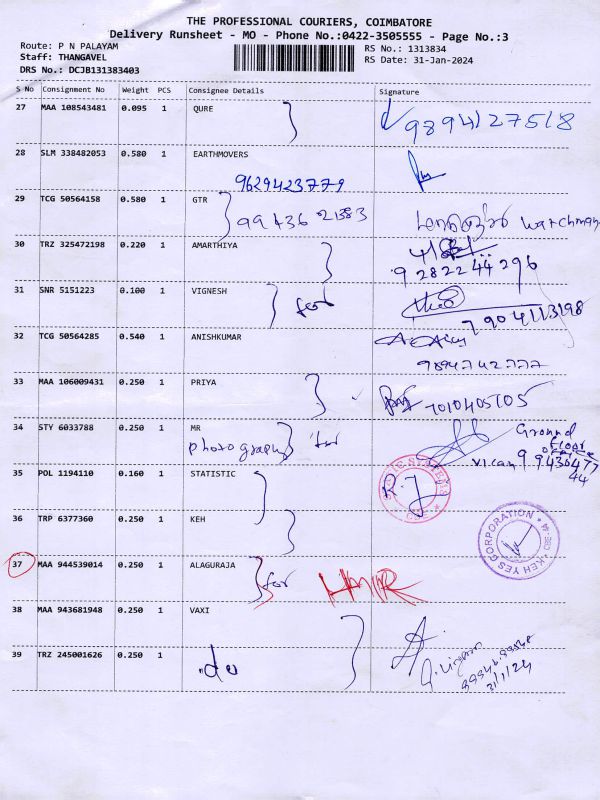 THE PROFESSIONAL COURIERS, COIMBATORE
Delivery Runsheet - MO - Phone No.:0422-3505555 - Page No.:3
Route: P N PALAYAM
RS No.: 1313834
Staff: THANGAVEL
RS Date: 31-Jan-2024
DRS No.: DCJB131383403
S No Consignment No Weight PCS Consignee Details Signature
27 MAA 108543481 0.095 1 QURE
9894127518
28 SLM 338482053 0.580 1 EARTHMOVERS
9629423779
29 TCG 50564158 0.580 1 GTR
watchman
30 TRZ 325472198 0.220 1 AMARTHIYA
9 282244296
31 SNR 5151223 0.100 1 VIGNESH
for
7904113198
32 TCG 50564285 0.540 1 ANISHKUMAR
9894742777
33 MAA 106009431 0.250 1 PRIYA
7010405705
34 STY 6033788 0.250 1 MR
photography
Ground
floor
office
35 POL 1194110 0.160 1 STATISTIC
36 TRP 6377360 0.250 1 KEH
KEH YES CORPORATION
37 MAA 944539014 0.250 1 ALAGURAJA
for
38 MAA 943681948 0.250 1 VAXI
39 TRZ 245001626 0.250 1
do
31/1/24